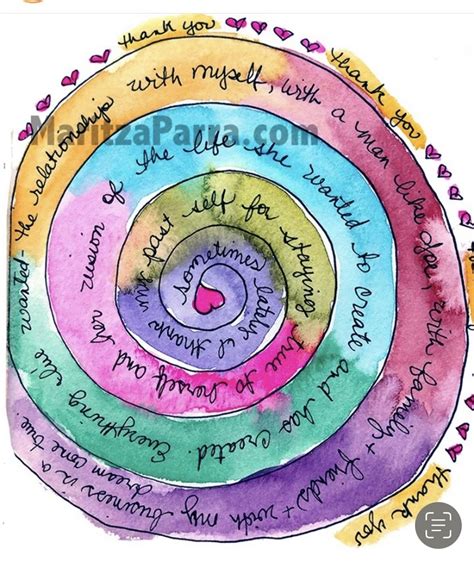 sometimes lately I thank my past self for staying true to herself and her vision of the life she wanted to create and has created. Everything I've wanted- the relationships with myself, with a man like Joe, with family + friends + with my business is a dream come true.
thank you
thank you
thank you
MaritzaParra.com